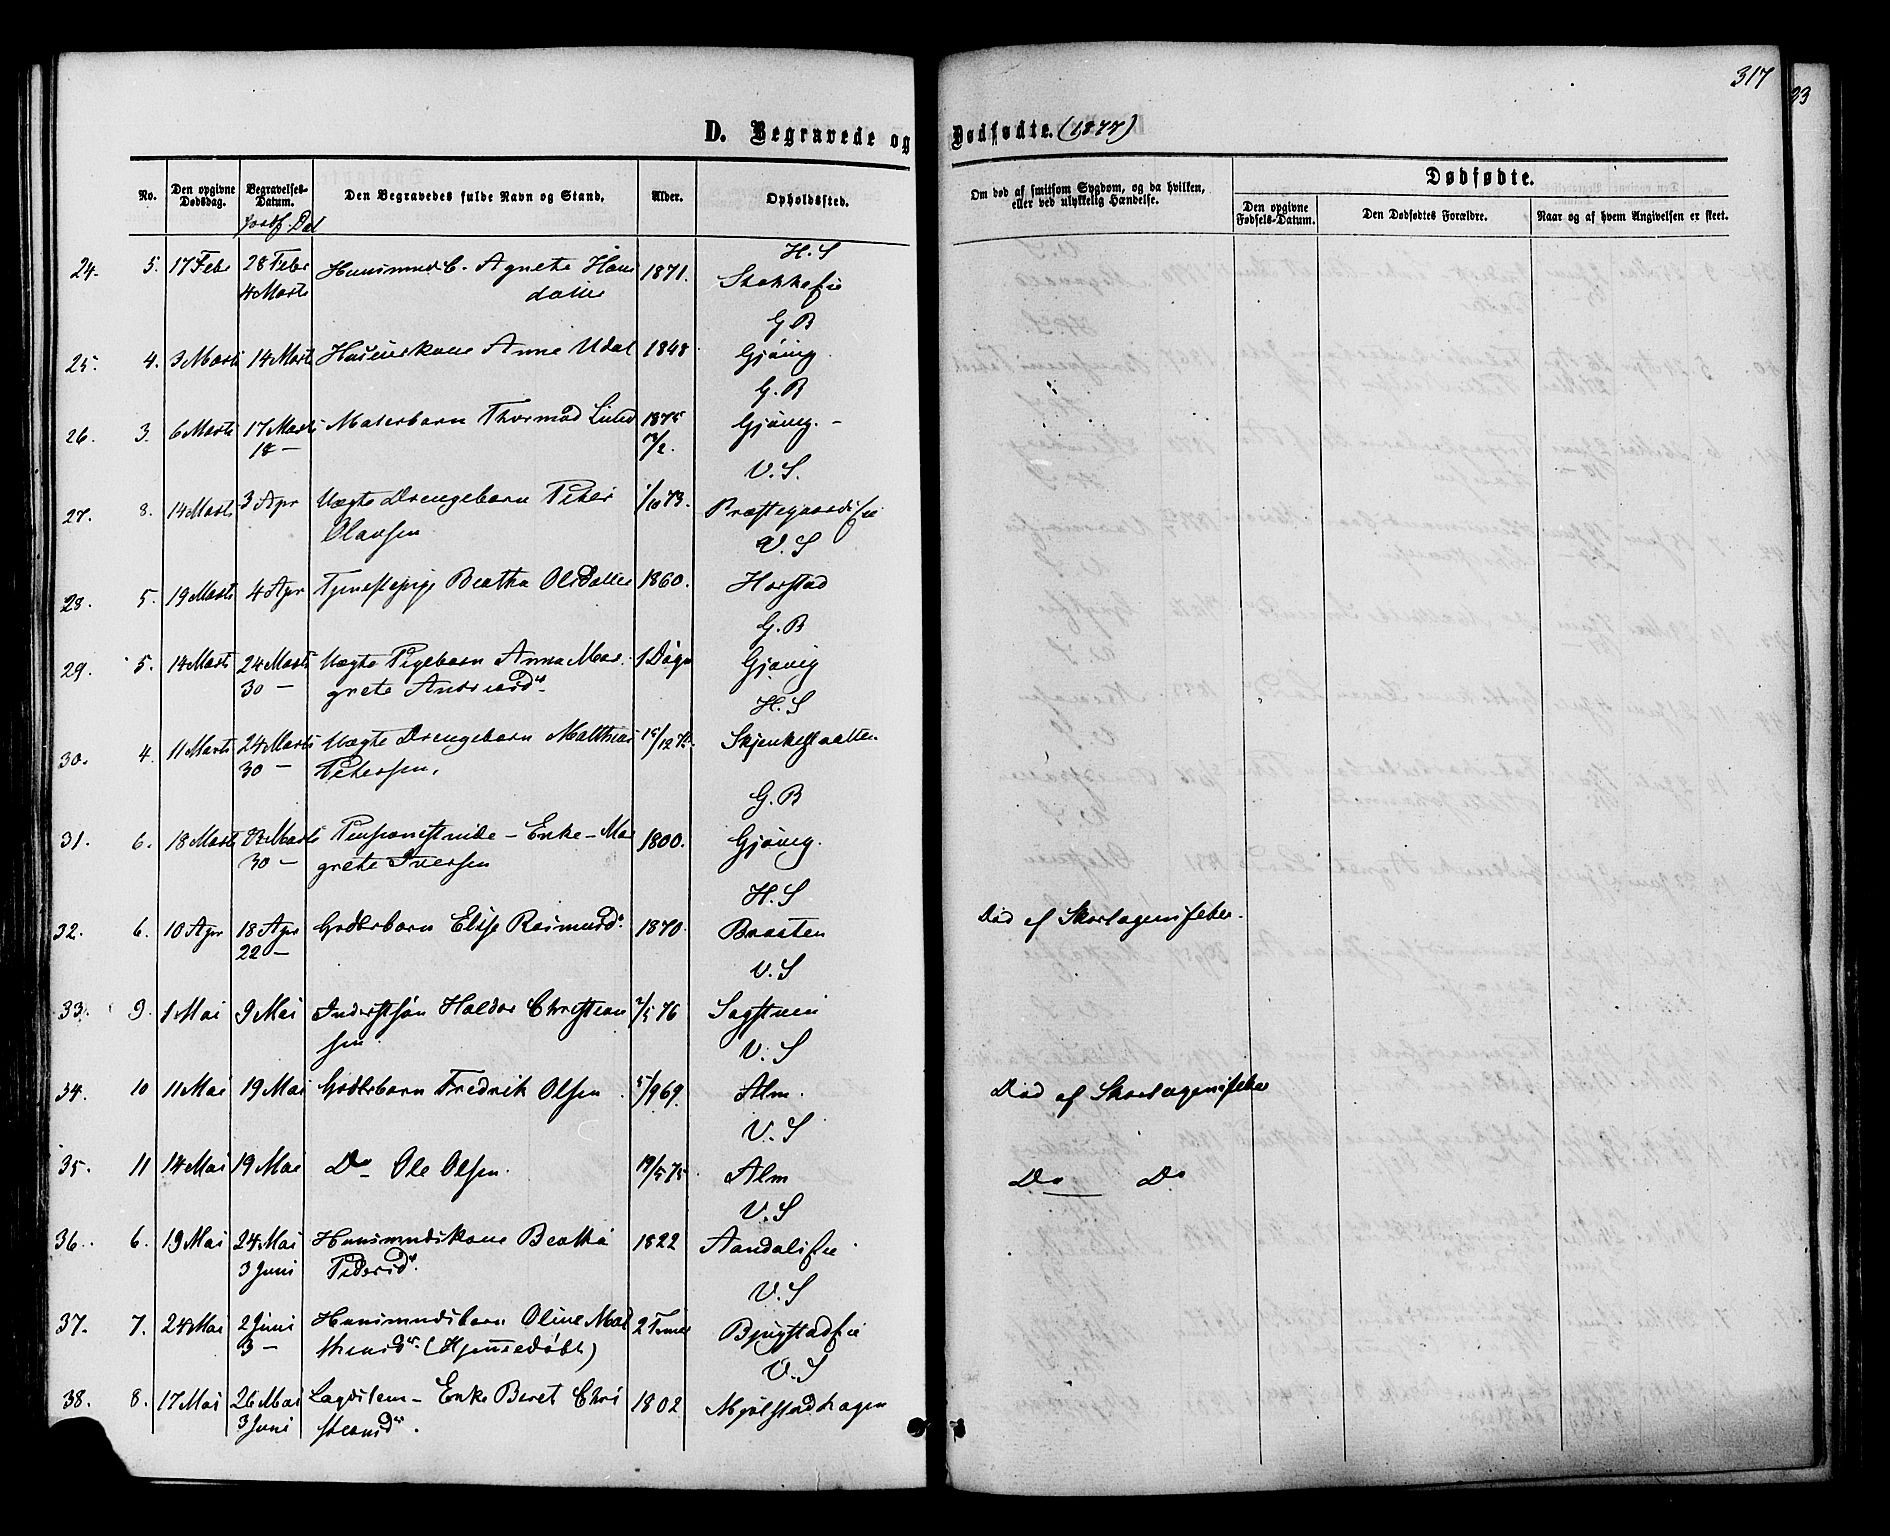 317
D. Begravede og Dødfødte. (1877)
No. Den opgivne Dødsdag. Begravelses-Datum. Den Begravedes fulde Navn og Stand. Alder. Opholdssted. Om død af smitsom Sygdom, og da hvilken, eller ved ulykkelig Hændelse. Dødfødte.
Den opgivne Fødsels-Datum. Den Dødfødtes Forældre. Naar og af hvem Angivelsen er skeet.
Jordf. Dat
H. S
24. 5. 17 Febr 28 Febr Agnete Hans 1871.
4 Marts datter
G. B
25. 4. 3 Marts 14 Marts Anne Udal 1848 Gjøvig
G. B
26. 3. 6 Marts 17 Marts Malerbarn Thormod Lund 1875 Gjøvig. -
18 -
V. S.
27. 8. 14 Marts 3 Apr Uægte Drengebarn Peter 1/10 73. Præstegaardsfie
Olavsen
V. S
28. 5. 19 Marts 4 Apr Tjenestepige Beatha Olsdatter 1860. Harstad
G. B
29. 5. 14 Marts 24 Marts Uægte Pigebarn Anna Mar- 1 Døgn Gjøvig
30 - grete Andersd.
H. S
30. 4. 11 Marts 24 Marts Uægte Drengebarn Matthias
30 - Petersen.
G. B
31. 6. 18 Marts Marts Enke - Mar 1800. Gjøvig.
30 - grete Iversen
H. S
32. 6. 10 Apr 18 Apr Gaardbbarn Elise Rasmusd. 1870. Braaten Død af Skarlagensfeber.
22 -
V. S
33. 9. 1 Mai 9 Mai Inderstsøn Haldor Christian 76 Sagstuen
sen.
V. S
34. 10 11 Mai 19 Mai Gaardbbarn Fredrik Olsen 5/9 69. Alm. Død af Skarlagensfeber
V. S
35. 11 14 Mai 19 Mai Do Ole Olsen. 19/5 75 Alm Do Do
V. S
36. 6. 19 Mai 24 Mai Huusmandskone Beatha 1822 Aandalsfie
3 Juni Pedersd.
V. S
37. 7. 24 Mai 2 Juni Huusmandsbarn Oline Mat 2 Timer Bjugstadfie
3 - thiasd. (Hjemmedøbt)
V. S
38. 8. 17 Mai 26 Mai Lægdslem - Enke Beret Chri 1802 Mjølstadhagen
3 Juni stiansd.